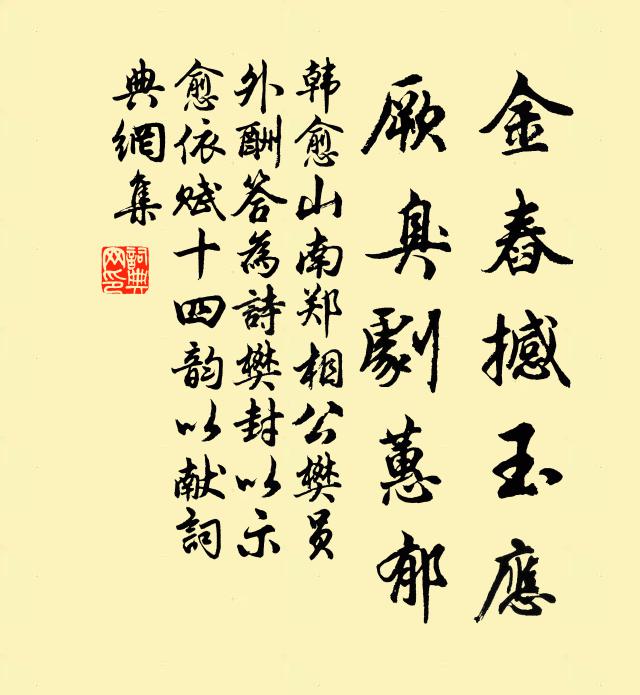 金舂撼玉應
厥臭劇蕙郁
韩愈山南郑相公樊员
外酬答為詩樊封以示
愈依赋十四韵以献詞
典網集
詞典網印